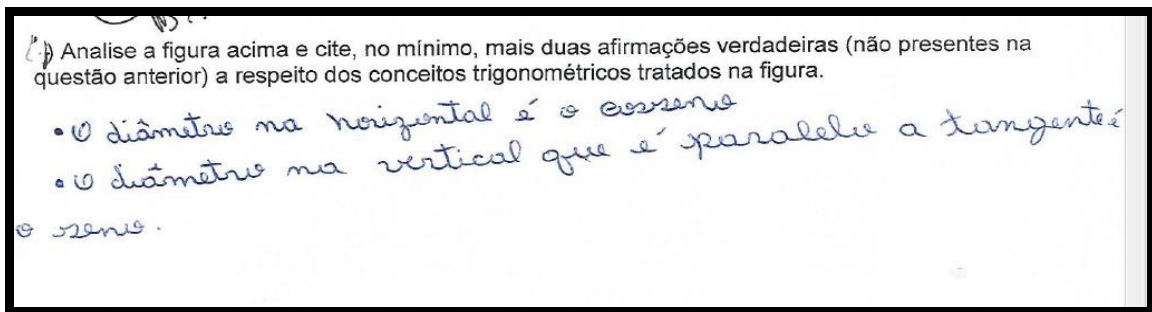 ) Analise a figura acima e cite, no mínimo, mais duas afirmações verdadeiras (não presentes na
questão anterior) a respeito dos conceitos trigonométricos tratados na figura.
• O diâmetro na horizontal é o cosseno
• O diâmetro na vertical que é paralelo a tangente é
o seno.